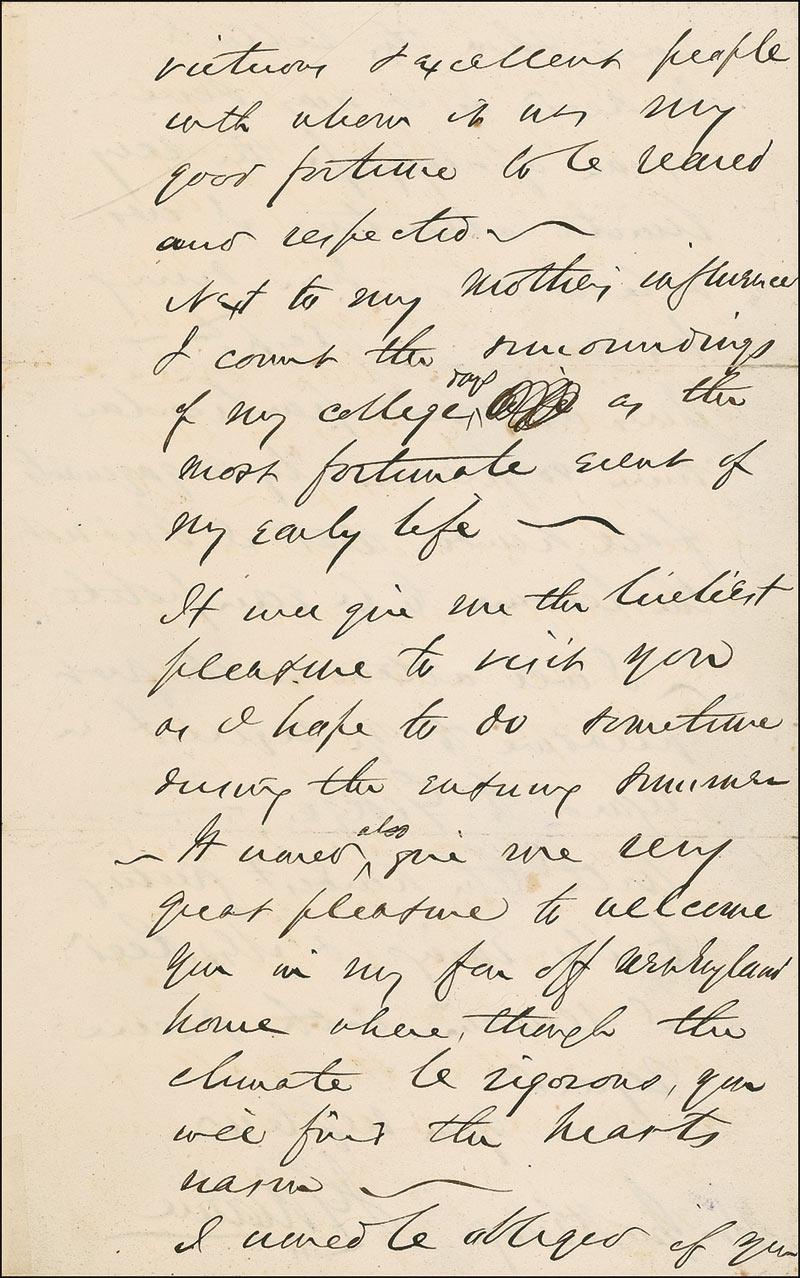 virtuous & excellent people
with whom it was my
good fortune to be reared
and respected ~
Next to my mother's influence
I count the surroundings
days
of my college, as the
most fortunate event of
my early life ~
It will give me the liveliest
pleasure to visit you
as I hope to do sometime
during the ensuing summer
also
~ It would give me very
great pleasure to welcome
you in my far off New England
home where, though the
climate be rigorous, you
will find the hearts
warm ~
I would be obliged if you